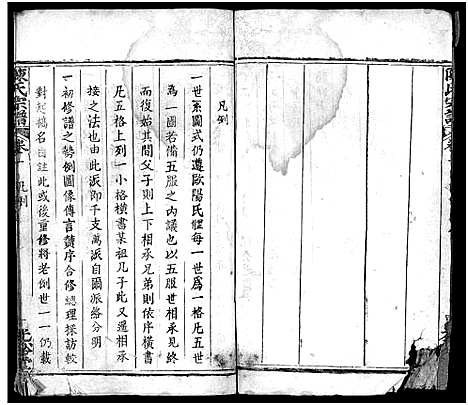 陳氏宗譜
凡例
一世系圖式仍遵歐陽氏體每一世為一格凡五世
為一圖者備五服之內議也以五服世相承見終
而復始其間父子則上下相承兄弟則依序橫書
凡五格上列一小格橫書某祖几子此又遞相承
接之法也由此派即千支萬派自爾派絡分明
一初修譜之勢例圖像傳言贊序合修總理採訪較
對起稿名由註此或後重修將老倒世一一仍載
陳氏宗譜 卷一 凡例